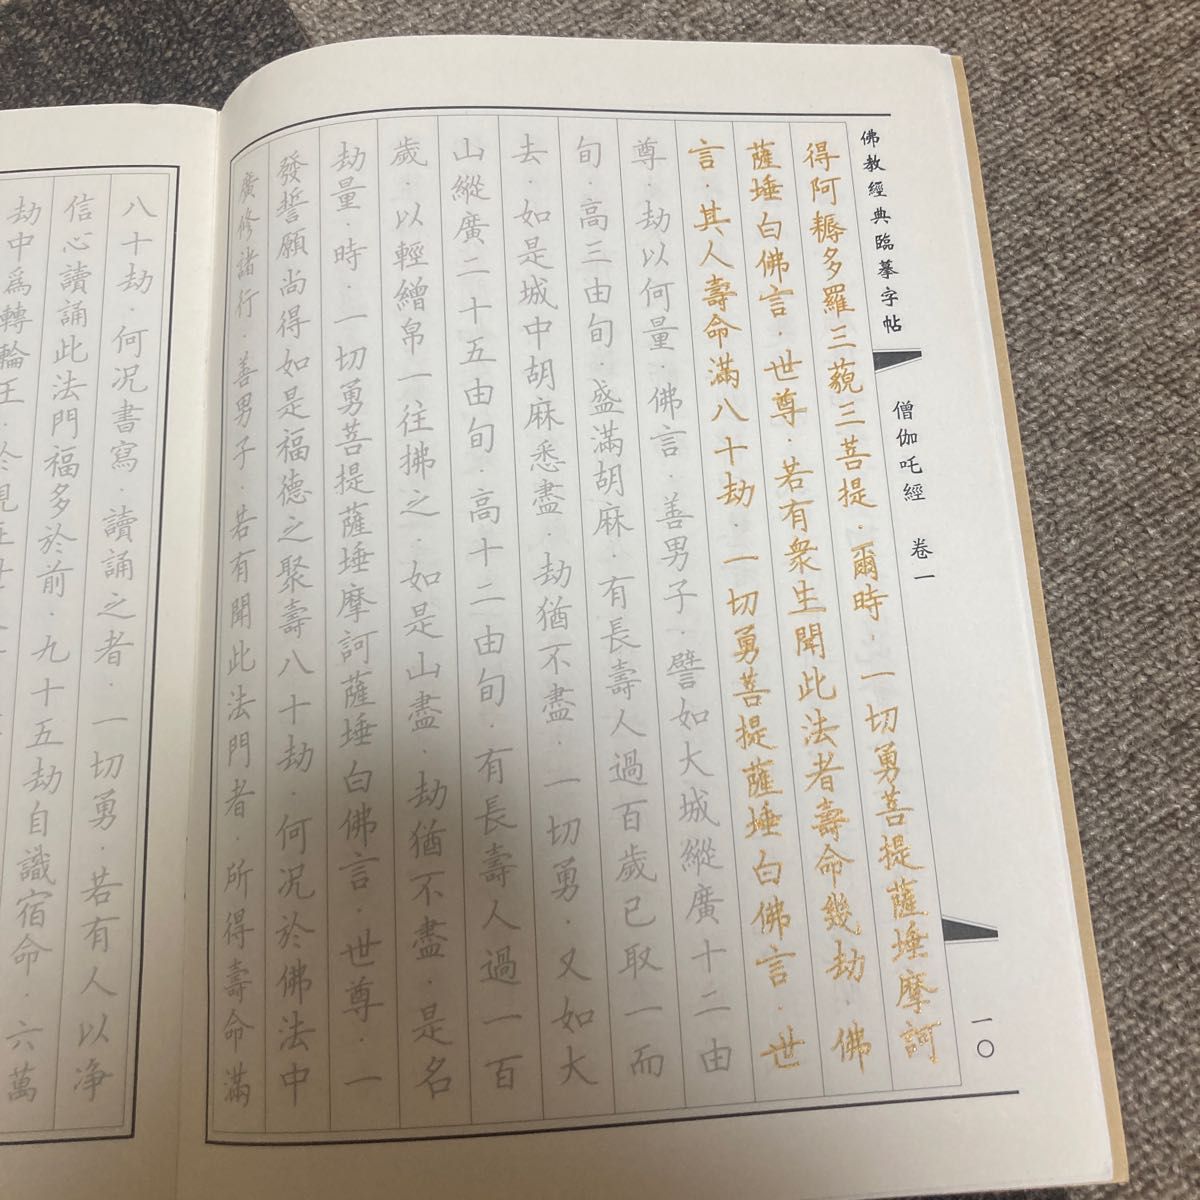 佛教經典臨摹字帖
僧伽吒經 卷一
一〇
得阿耨多羅三藐三菩提．爾時．一切勇菩提薩埵摩訶
薩埵白佛言．世尊．若有衆生聞此法者壽命幾劫．佛
言．其人壽命滿八十劫．一切勇菩提薩埵白佛言．世
尊．劫以何量．佛言．善男子．譬如大城縱廣十二由
旬．高三由旬．盛滿胡麻．有長壽人過百歲已取一而
去．如是城中胡麻悉盡．劫猶不盡．一切勇．又如大
山縱廣二十五由旬．高十二由旬．有長壽人過一百
歲．以輕繒帛一往拂之．如是山盡．劫猶不盡．是名
劫量．時．一切勇菩提薩埵摩訶薩埵白佛言．世尊．一
發誓願尚得如是福德之聚壽八十劫．何況於佛法中
廣修諸行．善男子．若有聞此法門者．所得壽命滿
八十劫．何況書寫．讀誦之者．一切勇．若有人以净
信心讀誦此法門福多於前．九十五劫自識宿命．六萬
劫中爲轉輪王．於現在世